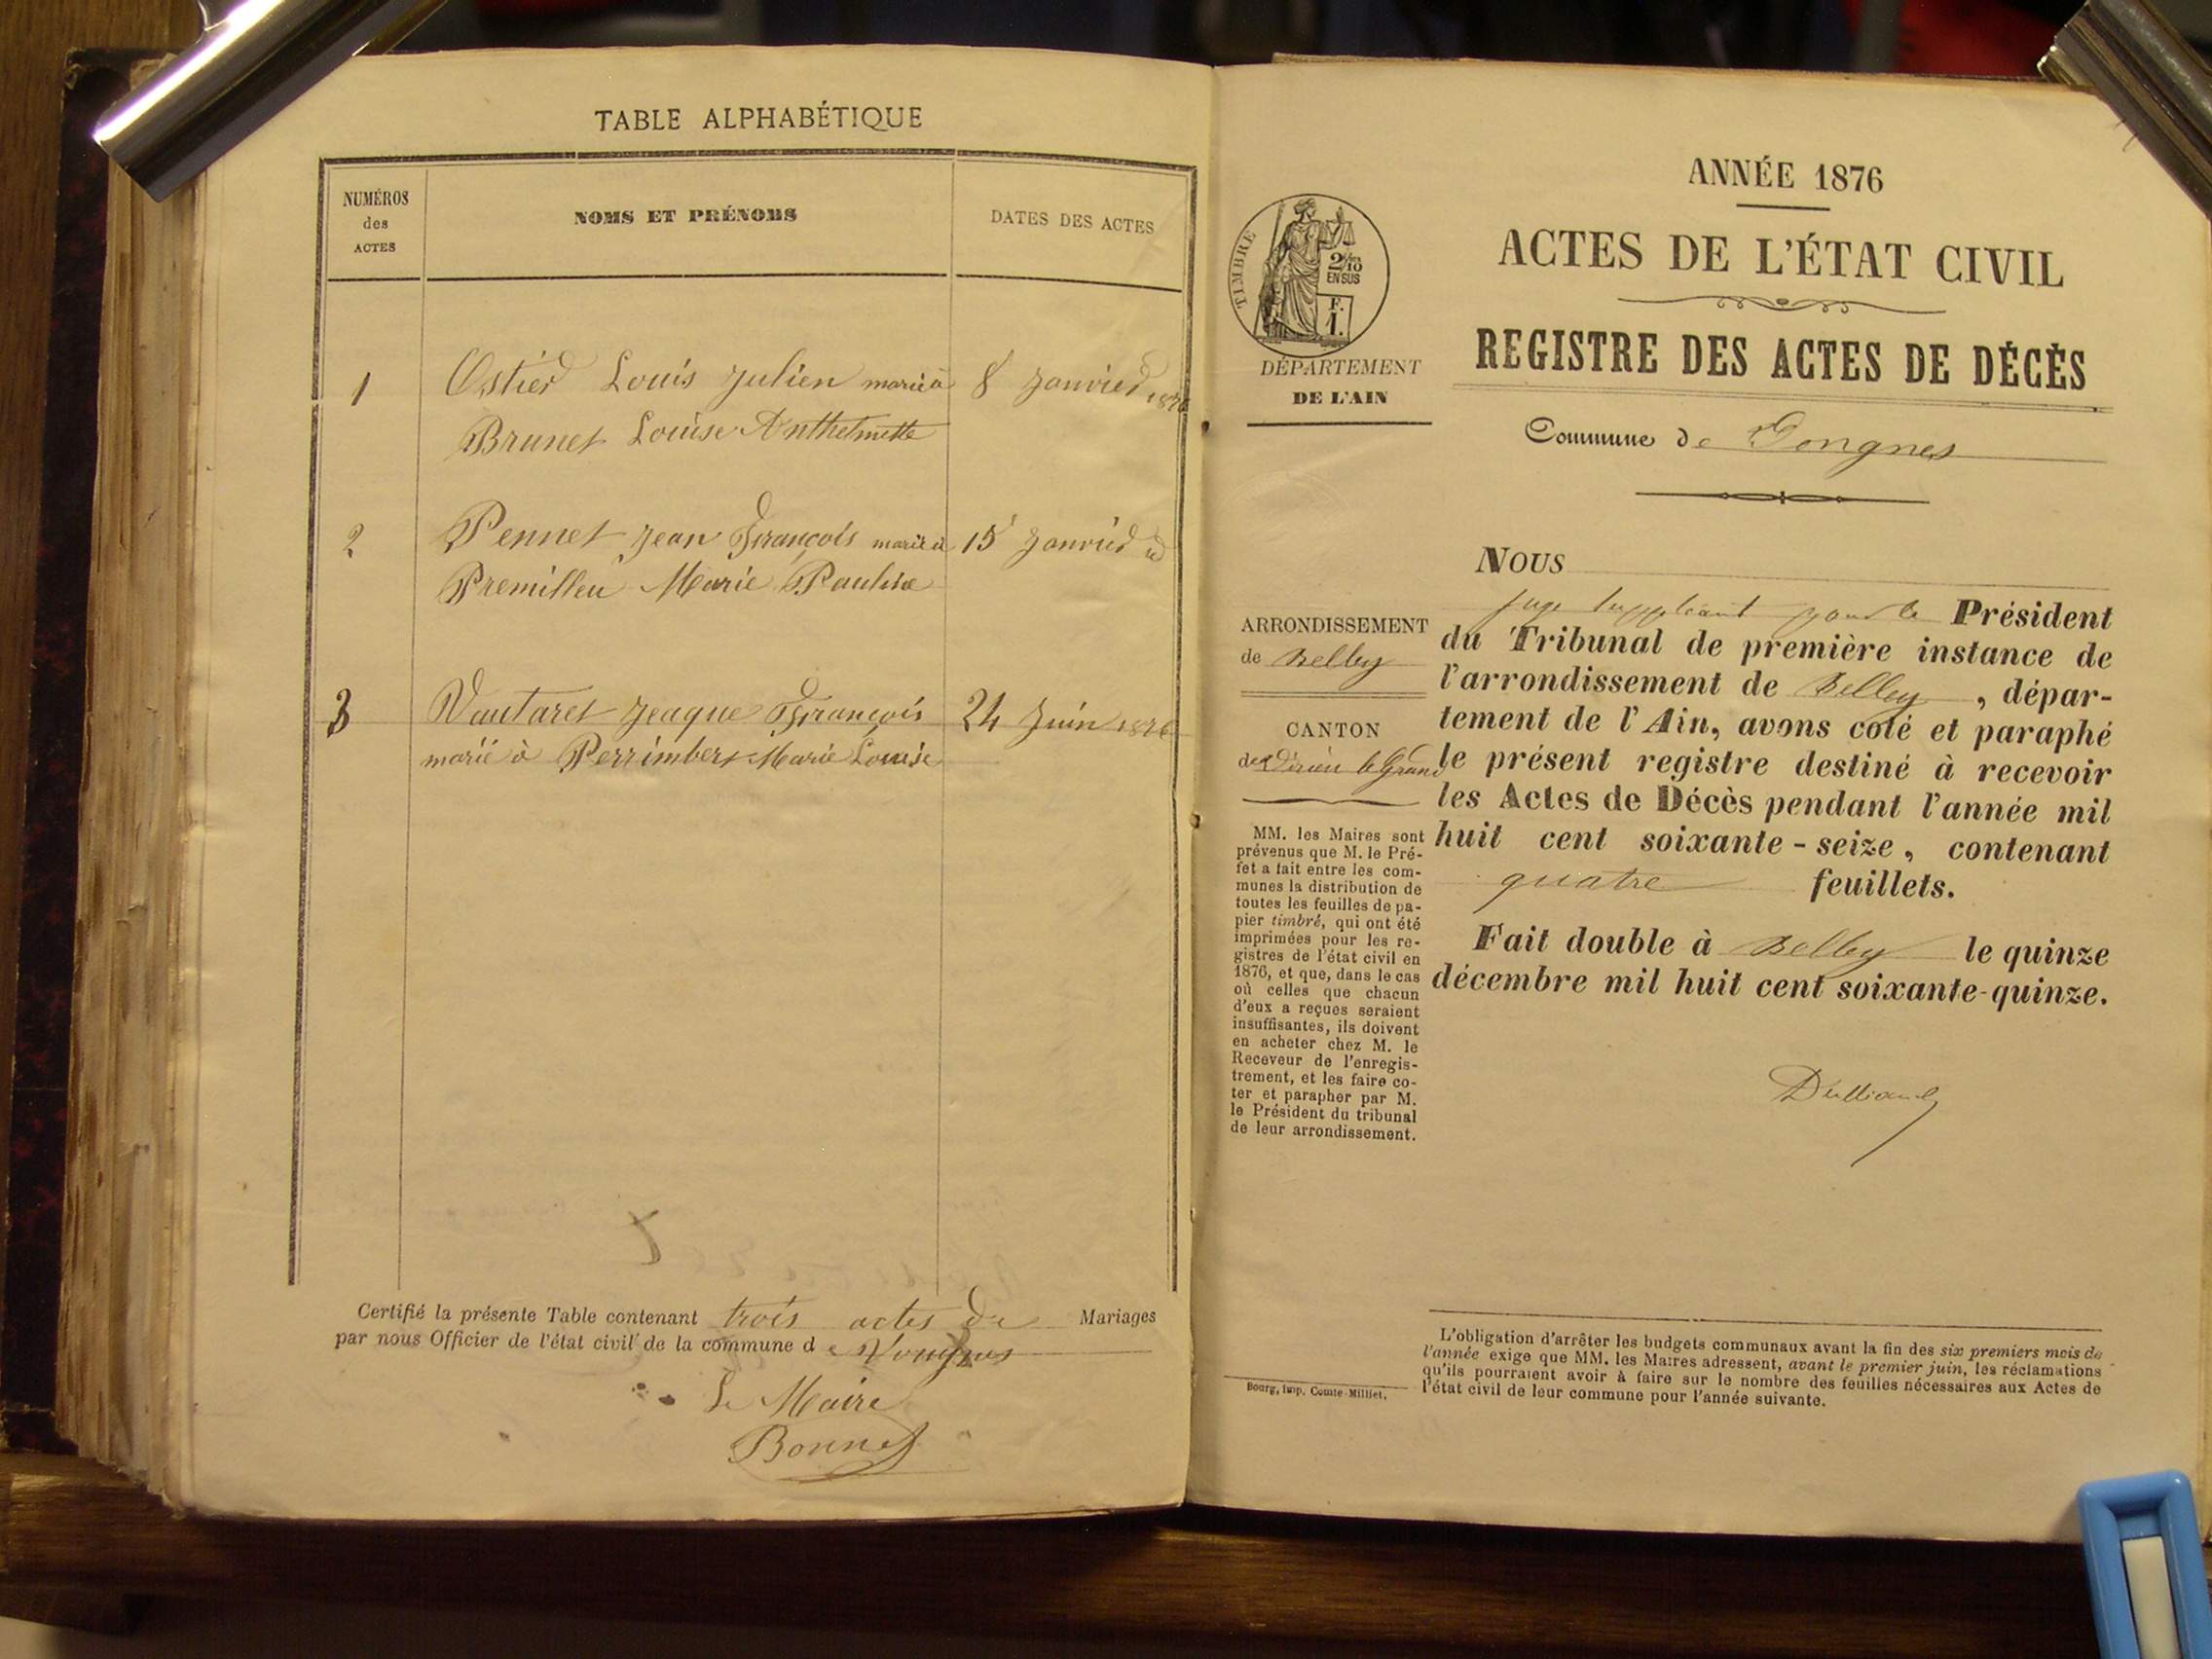 TABLE ALPHABÉTIQUE
NUMÉROS
des
ACTES
NOMS ET PRÉNOMS
DATES DES ACTES
1 Ostier Louis Julien marié à 8 Janvier 1876
Brunet Louise Anthelmette
2 Pennet Jean François marié à 15 Janvier id
Premilleu Marie Pauline
3 Vautaret Jeaque François 24 Juin 1876
marié à Perrimbert Marie Louise
Certifié la présente Table contenant trois actes de Mariages
par nous Officier de l'état civil de la commune de Vongnes
Le Maire
Bonnet
ANNÉE 1876
ACTES DE L'ÉTAT CIVIL
REGISTRE DES ACTES DE DÉCÈS
TIMBRE
2/10
EN SUS
F.
1.
DÉPARTEMENT
DE L'AIN
Commune de Vongnes
ARRONDISSEMENT
de Belley
CANTON
de Virieu le Grand
MM. les Maires sont
prévenus que M. le Pré-
fet a fait entre les com-
munes la distribution de
toutes les feuilles de pa-
pier timbré, qui ont été
imprimées pour les re-
gistres de l'état civil en
1876, et que, dans le cas
où celles que chacun
d'eux a reçues seraient
insuffisantes, ils doivent
en acheter chez M. le
Receveur de l'enregis-
trement, et les faire co-
ter et parapher par M.
le Président du tribunal
de leur arrondissement.
NOUS
juge suppléant pour le Président
du Tribunal de première instance de
l'arrondissement de Belley, dépar-
tement de l'Ain, avons coté et paraphé
le présent registre destiné à recevoir
les Actes de Décès pendant l'année mil
huit cent soixante-seize, contenant
quatre feuillets.
Fait double à Belley le quinze
décembre mil huit cent soixante-quinze.
L'obligation d'arrêter les budgets communaux avant la fin des six premiers mois de
l'année exige que MM. les Maires adressent, avant le premier juin, les réclamations
qu'ils pourraient avoir à faire sur le nombre des feuilles nécessaires aux Actes de
l'état civil de leur commune pour l'année suivante.
Bourg, imp. Comte-Milliet.